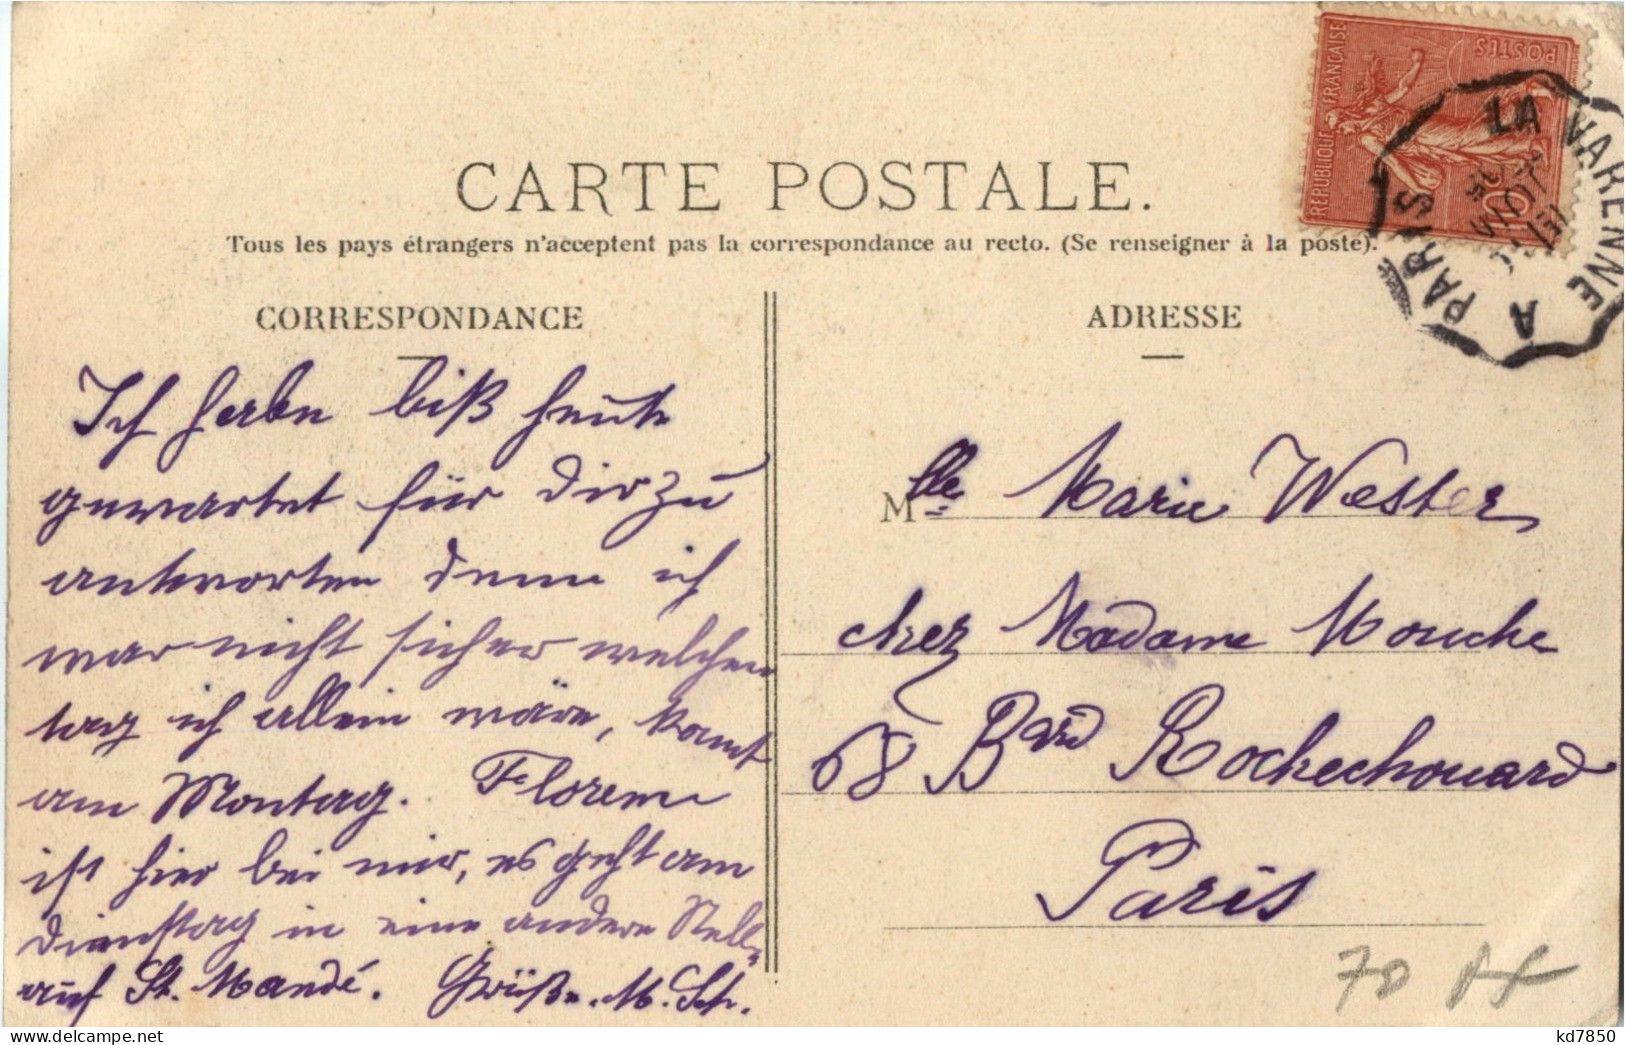 CARTE POSTALE.
Tous les pays étrangers n'acceptent pas la correspondance au recto. (Se renseigner à la poste).
CORRESPONDANCE
Ich habe biß heute
gewartet für Dir zu
antworten denn ich
war nicht sicher welchen
tag ich allein wäre, kannst
am Montag. Florence
ist hier bei mir, es geht am
Dienstag in eine andere Stelle
auf St. Mandé. Grüße. M. Sch.
ADRESSE
Mlle Marie Wester
chez Madame Mouche
68 Bard Rochechouard
Paris
REPUBLIQUE FRANÇAISE
POSTES
10
LA VARENNE A PARIS
70
kd7850